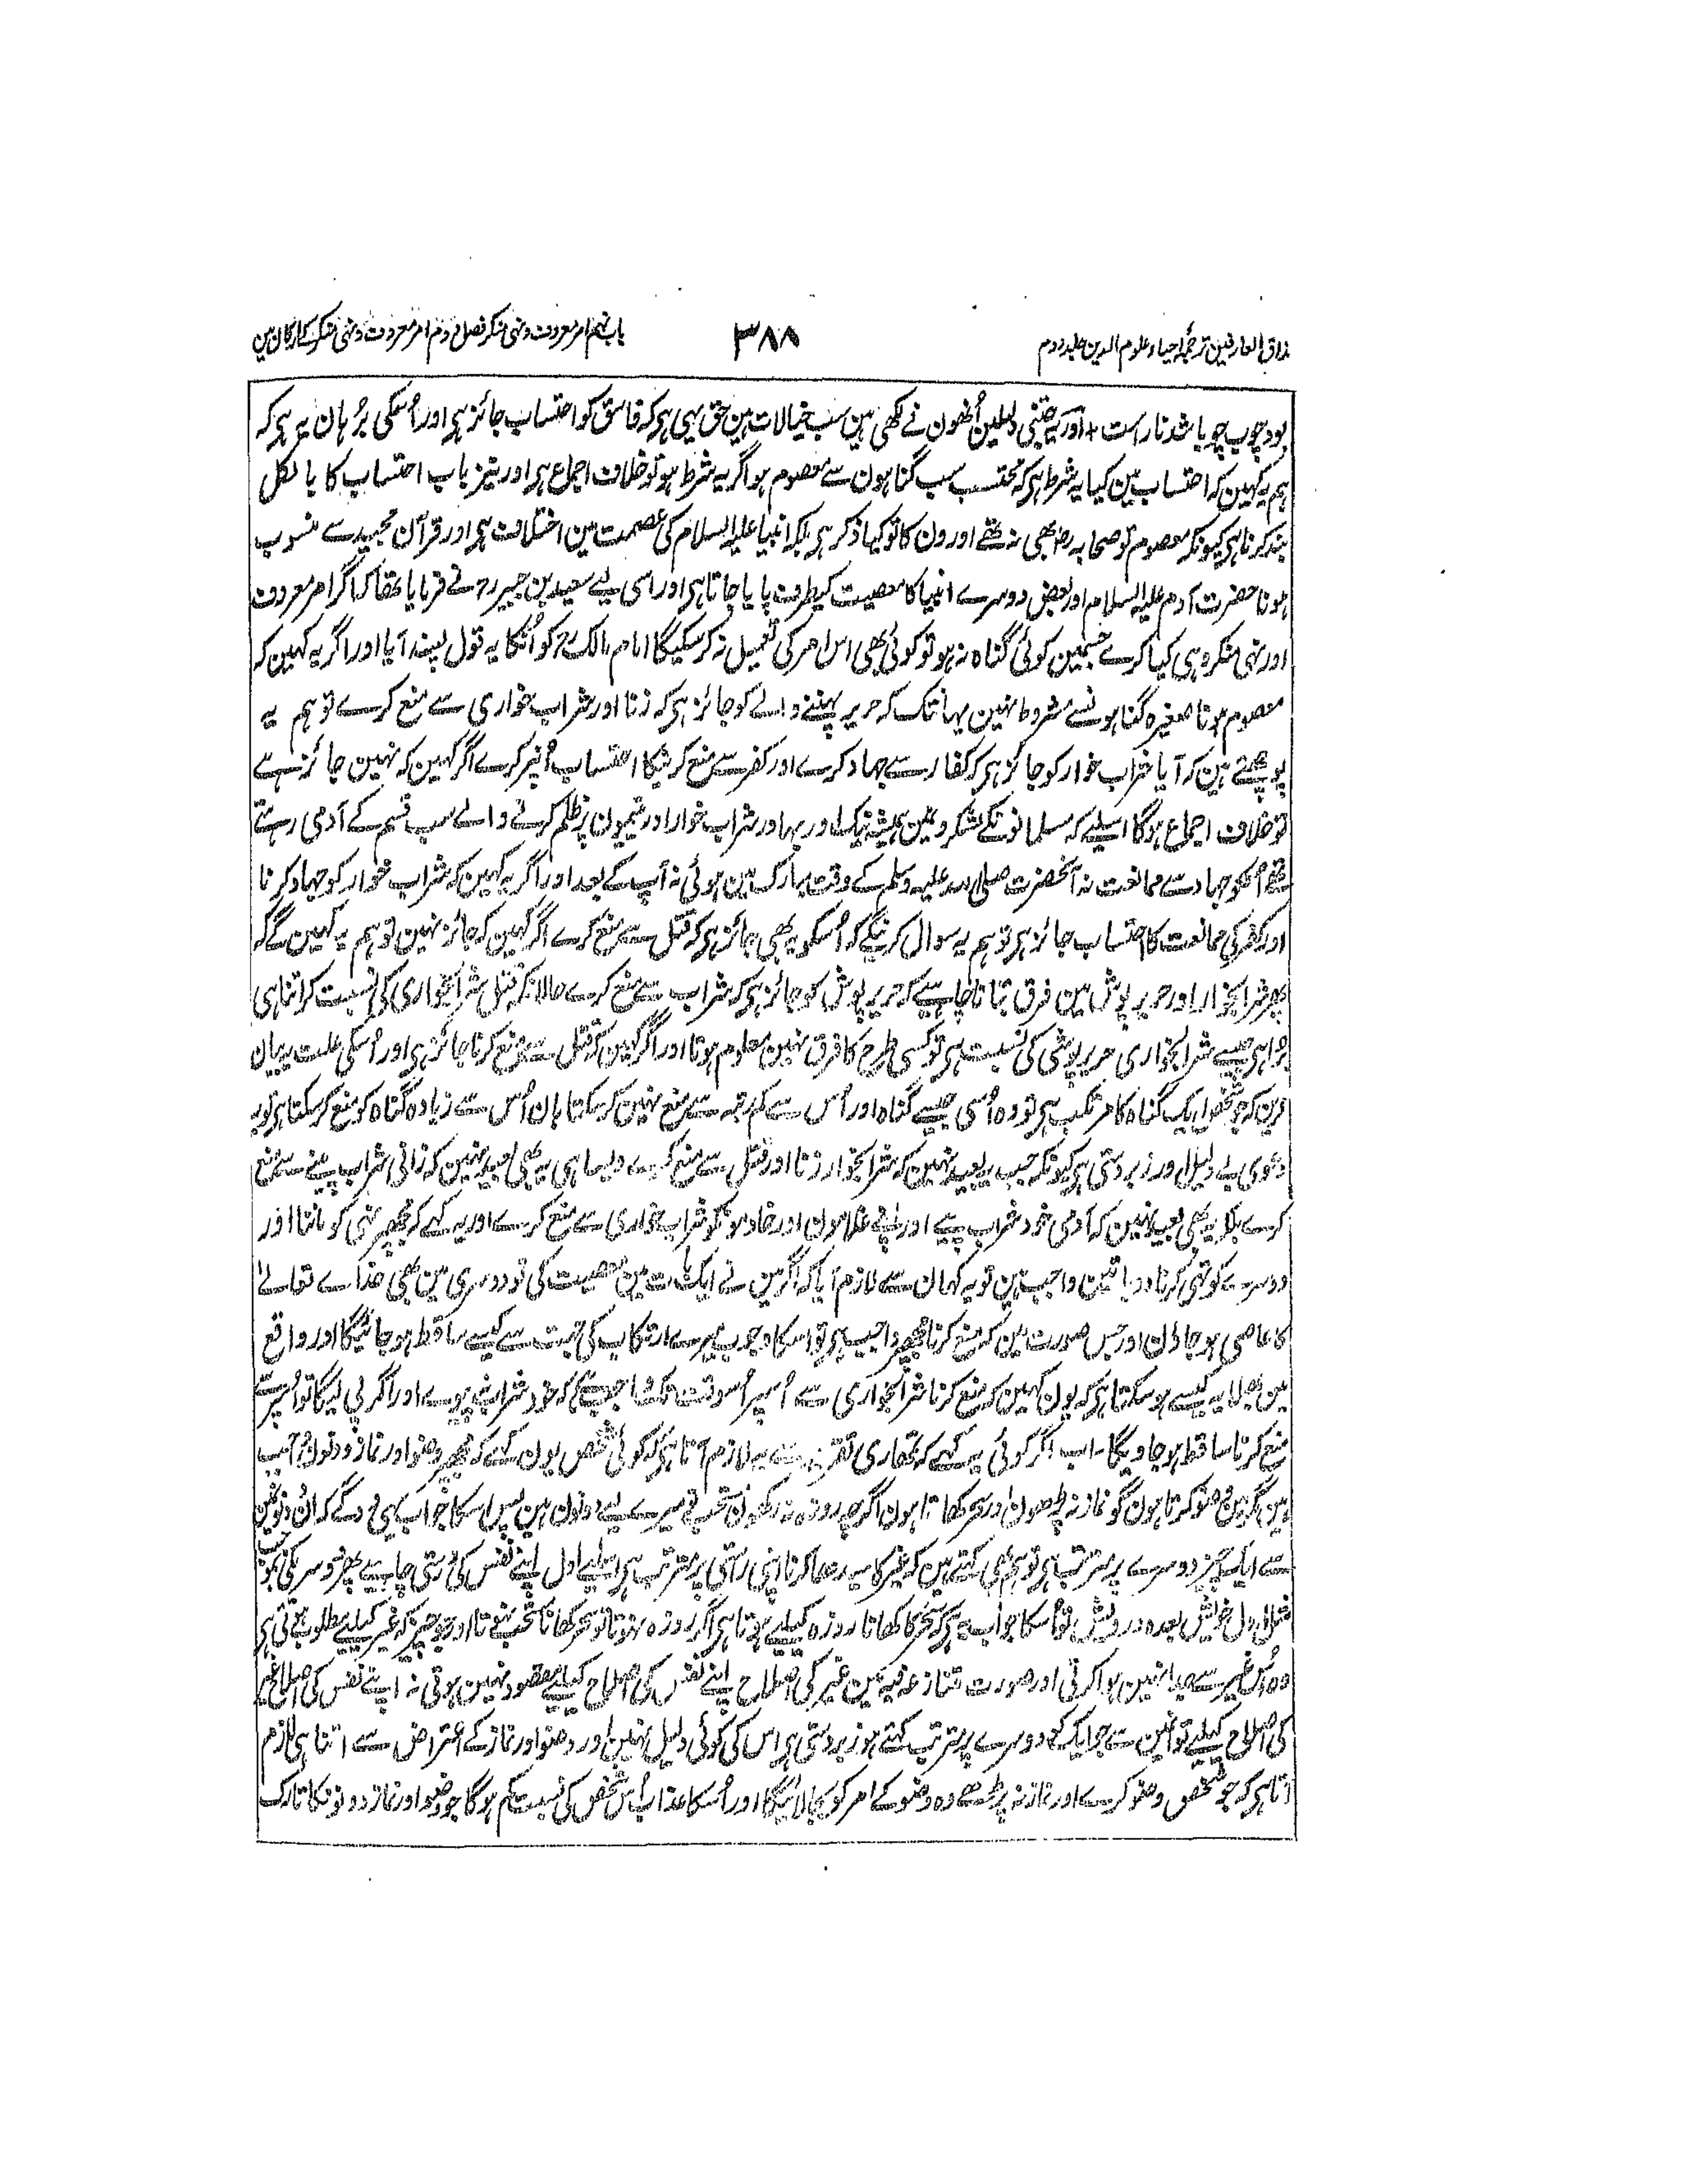 مذاق العارفین ترجمۂ احیاء علوم الدین جلد دوم
۳۸۸
باب نہم امر معروف و نہی منکر فصل دوم امر معروف و نہی منکر کے ارکان مین
بود چوب چو باشد ناراست + اور یہ جتنی دلیلین اُنھون نے لکھی ہین سب خیالات ہین حق یہی ہر کہ فاسق کو احتساب جائز ہر اور اُسکی برُہان یہ ہر کہ
ہم یہ کہین کہ احتساب مین کیا یہ شرط ہر کہ محتسب سب گناہون سے معصوم ہو اگر یہ شرط ہو تو خلاف اجماع ہر اور نیز باب احتساب کا بالکل
بند کرنا ہر کیونکہ معصوم تو صحابہ رض بھی نہ تھے اورون کا تو کیا ذکر ہر بلکہ انبیا علیہ السلام کی عصمت مین اختلاف ہر اور قرآن مجید سے منسوب
ہونا حضرت آدم علیہ السلام اور بعض دوسرے انبیا کا معصیت کیطرف پایا جاتا ہر اور اسی لیے سعید بن جبیر رح نے فرمایا تھا کہ اگر امر معروف
اور نہی منکر وہی کیا کرے جسمین کوئی گناہ نہو تو کوئی بھی اس امر کی تعمیل نہ کر سکیگا امام مالک رح کو اُنکا یہ قول پسند آیا اور اگر یہ کہین کہ
معصوم ہونا صغیرہ گناہونسے مشروط نہین یہانتک کہ حریر پہننے والے کو جائز ہر کہ زنا اور شراب خواری سے منع کرے تو ہم یہ
پوچھتے ہین کہ آیا شراب خوار کو جائز ہر کہ کفار سے جہاد کرے اور کفر سے منع کرنیکا احتساب اُنپر کرے اگر کہین کہ نہین جائز ہے
تو خلاف اجماع ہوگا اسلیے کہ مسلمانونکے لشکرونمین ہمیشہ نیک اور بہادر شراب خوار اور یتیمون پر ظلم کرنے والے سب قسم کے آدمی رہتے
تھے اُنکو جہاد سے ممانعت نہ آنحضرت صلی اللہ علیہ وسلم کے وقت مبارک مین ہوئی نہ آپ کے بعد اور اگر یہ کہین کہ شراب خوار کو جہاد کرنا
اور کفر کی ممانعت کا احتساب جائز ہر تو ہم یہ سوال کرینگے کہ اُسکو یہ بھی جائز ہر کہ قتل سے منع کرے اگر کہین کہ جائز نہین تو ہم یہ کہین گے کہ
پھر شرابخوار اور حریر پوش مین فرق بتانا چاہیے کہ حریر پوش کو جائز ہر کہ شراب سے منع کرے حالانکہ قتل شرابخواری کی نسبت کر اتنا ہی
بُرا ہر جیسے شرابخواری حریر پوشی کی نسبت ہر تو کسی طرح کا فرق نہین معلوم ہوتا اور اگر کہین کہ قتل سے منع کرنا جائز ہر اور اُسکی علت یہ بیان
کرین کہ جو شخص ایک گناہ کا مرتکب ہر تو وہ اُسی جیسے گناہ اور اُس سے کم رتبہ سے منع نہین کر سکتا ہان اُس سے زیادہ گناہ کو منع کر سکتا ہر تو یہ
دعوی بے دلیل اور زبردستی ہر کیونکہ جب یہ بعید نہین کہ شرابخوار زنا اور قتل سے منع کرے ویسا ہی یہ بھی بعید نہین کہ زانی شراب پینے سے منع
کرے بلکہ یہ بھی بعید نہین کہ آدمی خود شراب پیے اور اپنے غلامون اور خادمونکو شراب خواری سے منع کرے اور یہ کہے کہ مجھپر نہی کو ماننا اور
دوسرے کو نہی کرنا دو باتین واجب ہین تو یہ کہان سے لازم آیا کہ اگر مین نے ایک بات مین معصیت کی تو دوسری مین بھی خداے تعالے
کا عاصی ہو جاؤن اور جس صورت مین کہ منع کرنا مجھپر واجب ہر تو اسکا وجوب میرے ارتکاب کی جہت سے کیسے ساقط ہو جائیگا اور واقع
مین بھلا یہ کیسے ہو سکتا ہر کہ یون کہین کہ منع کرنا شرابخواری سے اُسپر اُسوقت تک واجب ہے کہ خود شراب نہ پیوے اور اگر پی لیگا تو اُسپر سے
منع کرنا ساقط ہو جاویگا۔ اب اگر کوئی یہ کہے کہ تمھاری تقریر سے یہ لازم آتا ہر کہ کوئی شخص یون کہے کہ مجھپر وضو اور نماز دونون واجب
ہین مگر مین وضو کرتا ہون گو نماز نہ پڑھون اور سحر کھاتا ہون اگرچہ روزہ نہ رکھون مستحب تو میرے لیے دونون ہین پس اسکا جواب یہی دو گے کہ ان دونونمین
سے ایک چیز دوسرے پر مترتب ہر تو ہم بھی کہتے ہین کہ غیر کا سیدھا کرنا اپنی راستی پر مترتب ہر اسلیے اول اپنے نفس کی درستی چاہیے پھر دوسر یکی بموجب
مثل اول خویش بعدہ درویش تو اُسکا جواب یہ ہر کہ سحر کا کھانا روزہ کیلیے ہوتا ہر اگر روزہ نہوتا تو سحر کھانا مستحب نہوتا اور جو چیز کہ غیر کیلیے مطلوب ہوتی ہر
وہ اُس غیر سے جدا نہین ہوا کرتی اور صورت متنازعہ فیہ مین غیر کی اصلاح اپنے نفس کی اصلاح کیلیے مقصود نہین ہوتی نہ اپنے نفس کی اصلاح غیر
کی اصلاح کیلیے تو انمین سے جو ایک کو دوسرے پر مترتب کہتے ہو زبردستی ہر اس کی کوئی دلیل نہین اور وضو اور نماز کے اعتراض سے اتنا ہی لازم
آتا ہر کہ جو شخص وضو کرے اور نماز نہ پڑھے وہ وضو کے امر کو بجالائیگا اور اُسکا عذاب اُس شخص کی نسبت کم ہوگا جو وضو اور نماز دونونکا تارک